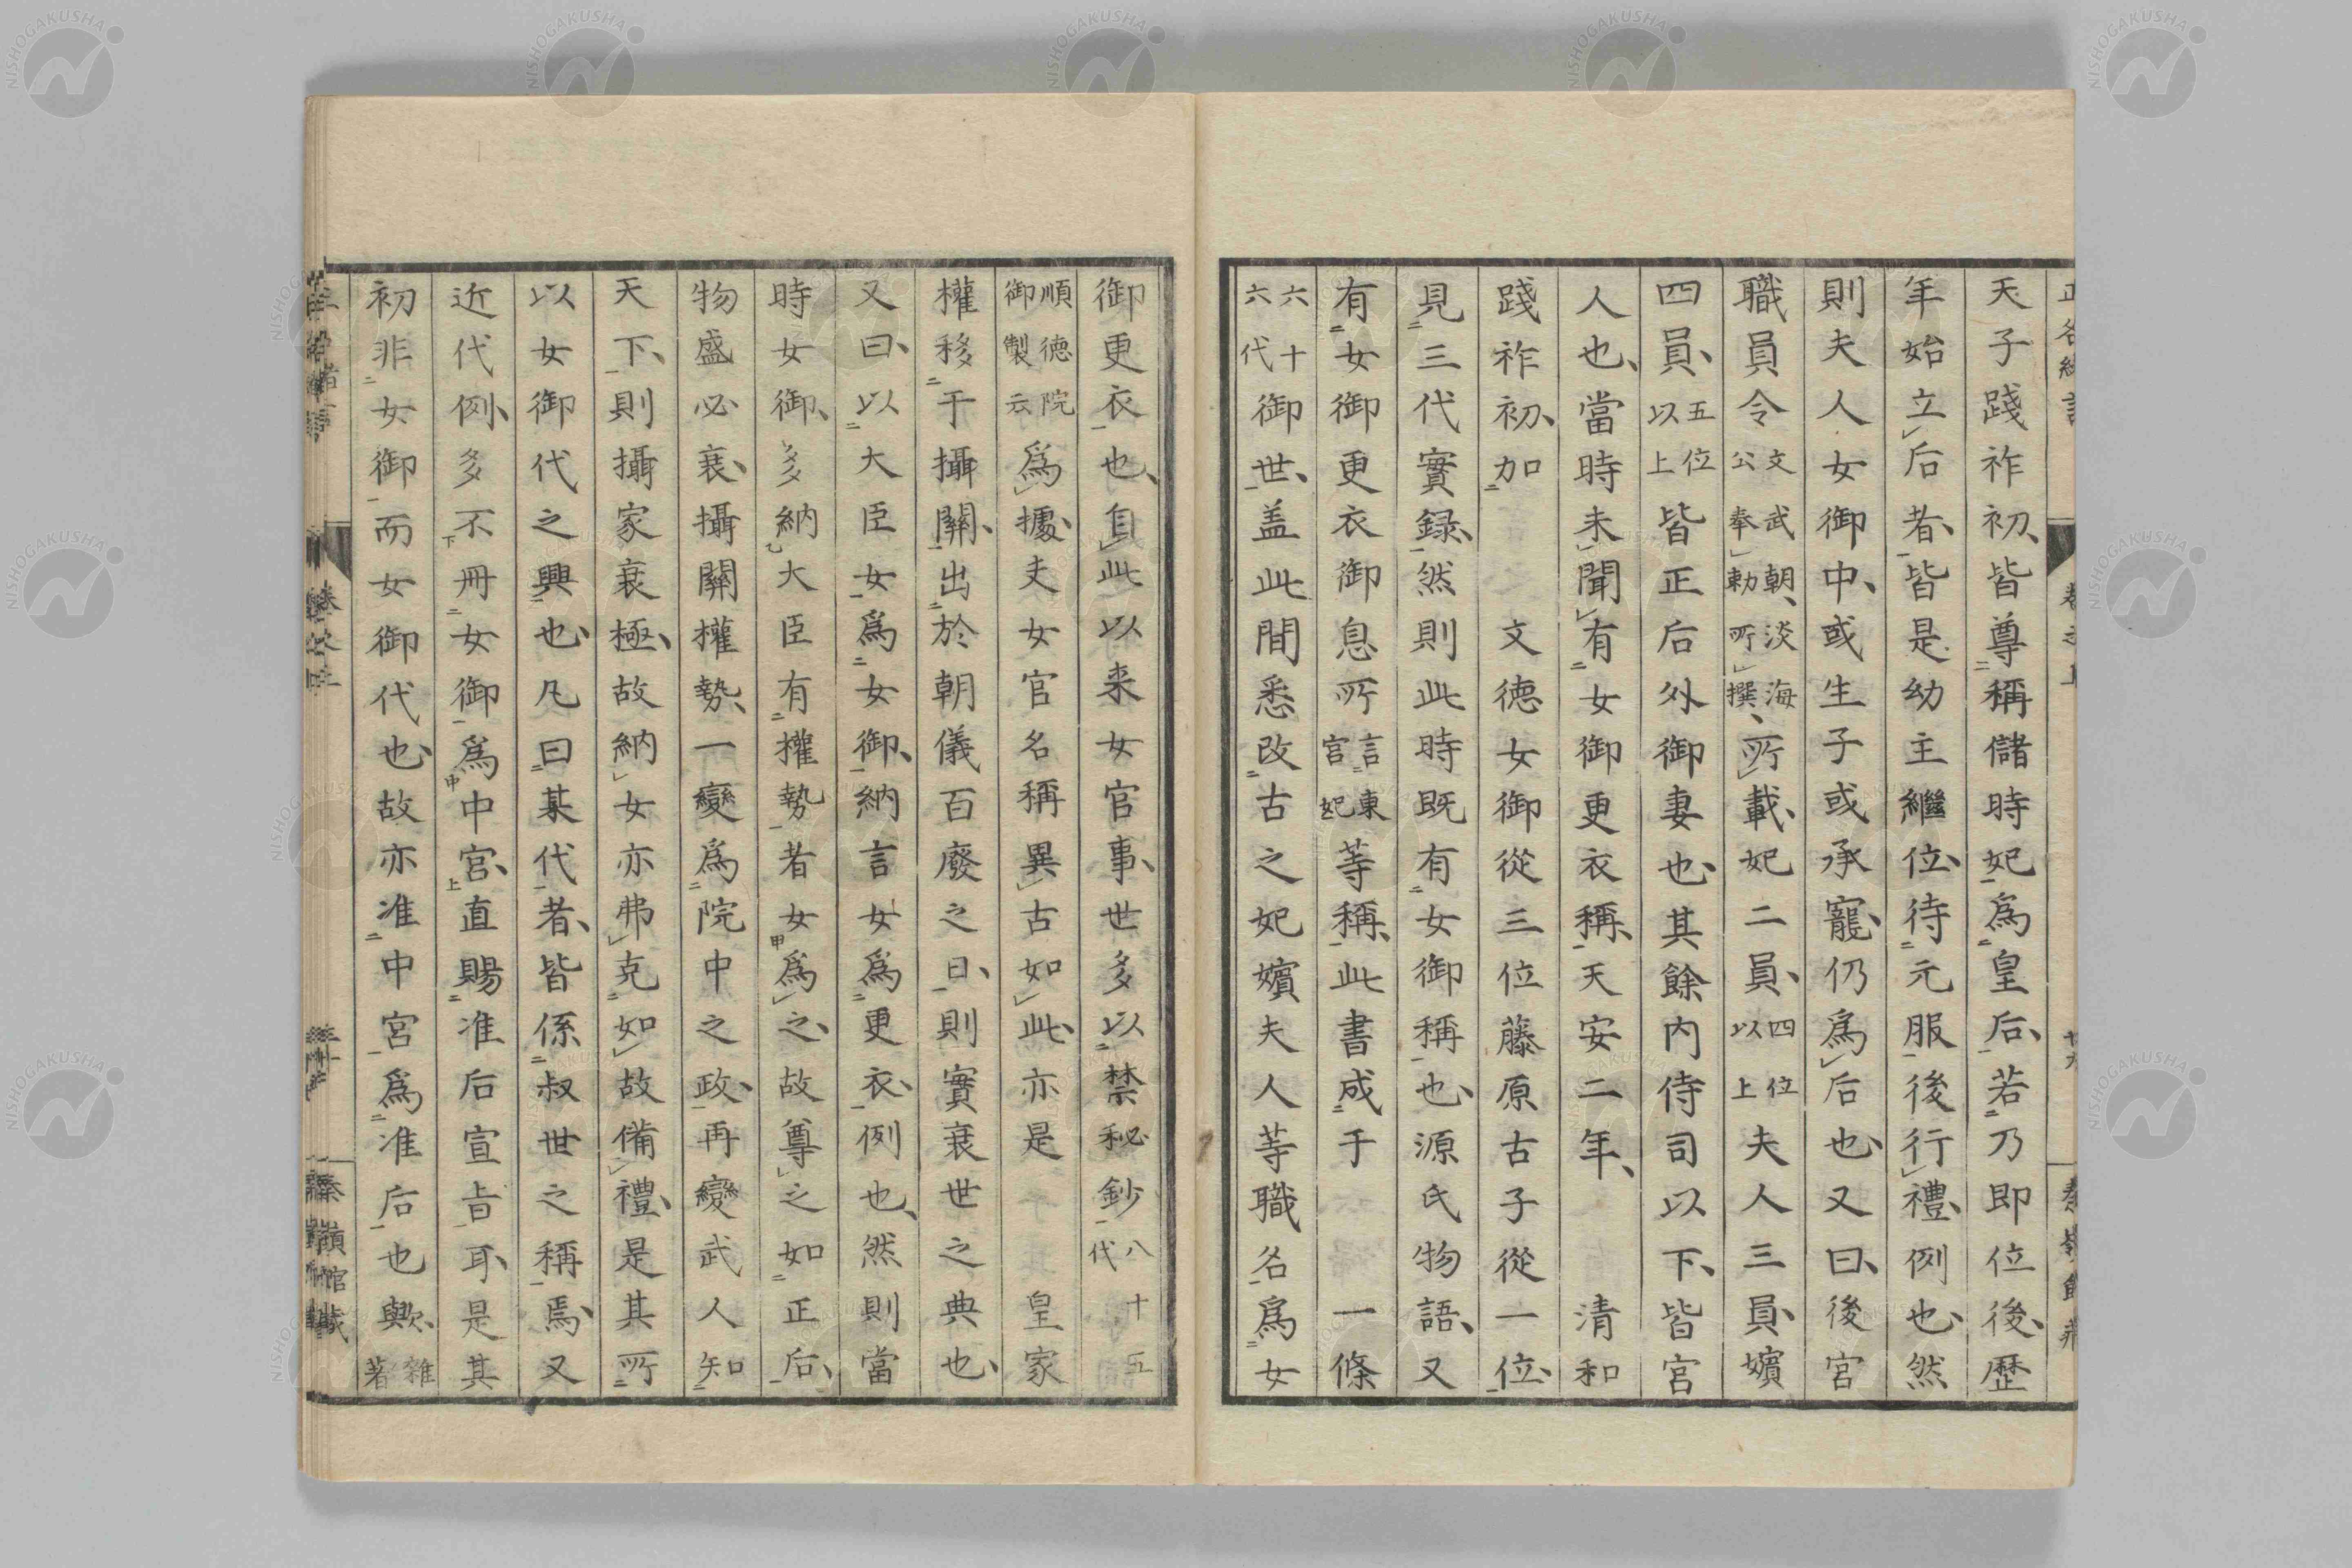 天子踐祚初、皆尊稱儲時妃爲皇后、若乃即位後、歴
年始立后者、皆是幼主繼位、待元服後行禮、例也、然
則夫人女御中、或生子或承寵、仍爲后也、又曰、後宮
職員令文武朝、淡海公奉勅所撰、所載、妃二員、四位以上夫人三員、嬪
四員、五位以上皆正后外御妻也、其餘内侍司以下、皆宮
人也、當時未聞有女御更衣稱、天安二年、清和
踐祚初、加文德女御從三位藤原古子從一位、
見三代實録、然則此時既有女御稱也、源氏物語、又
有女御更衣御息所言東宮妃等稱、此書成于一條
六十六代御世、盖此間悉改古之妃嬪夫人等職名、爲女
御更衣也、自此以来女官事、世多以禁秘鈔八十五代
順徳院御製云爲據、夫女官名稱異古如此、亦是皇家
權移于攝關、出於朝儀百廢之日、則實衰世之典也、
又曰、以大臣女爲女御、納言女爲更衣、例也、然則當
時女御、多納大臣有權勢者女爲之、故尊之如正后、
物盛必衰、攝關權勢、一變爲院中之政、再變武人知
天下、則攝家衰極、故納女亦弗克如故備禮、是其所
以女御代之興也、凡曰某代者、皆係叔世之稱焉、又
近代例、多不冊女御爲中宮、直賜准后宣旨耳、是其
初非女御而女御代也、故亦准中宮爲准后也歟、雜著